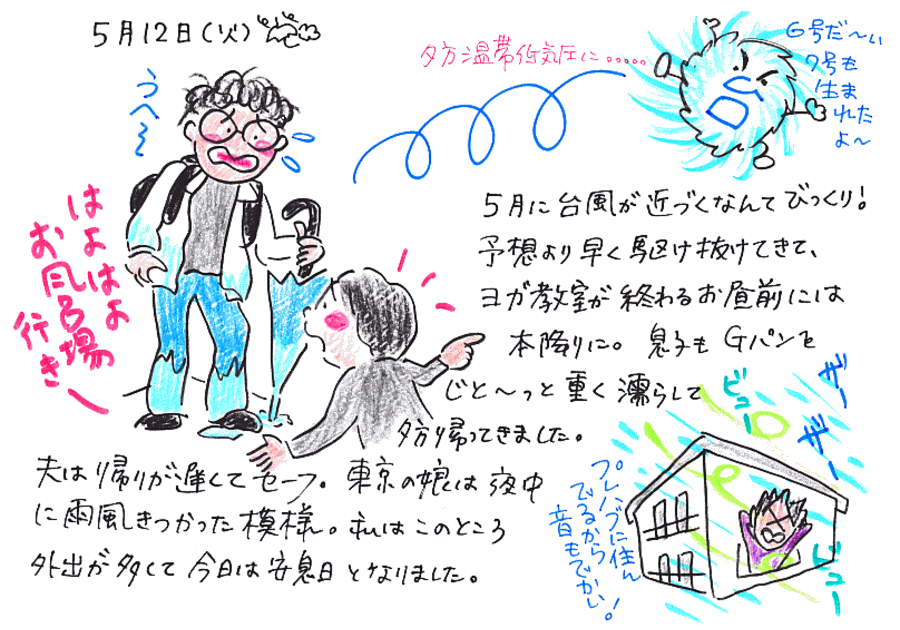 5月12日(火)
うへ〜
はよはよ
お風呂場
行き
夕方温帯低気圧に.....
6号だ〜い
7号も
生ま
れた
よ〜
5月に台風が近づくなんてびっくり!
予想より早く駆け抜けてきて、
ヨガ教室が終わるお昼前には
本降りに。息子もGパンを
じと〜っと重く濡らして
夕方帰ってきました。
夫は帰りが遅くてセーフ。東京の娘は夜中
に雨風きつかった模様。私はこのところ
外出が多くて今日は安息日となりました。
プレハブに住ん
でるから
音もでかい!
ビュー
ザー
ザー
ビュー